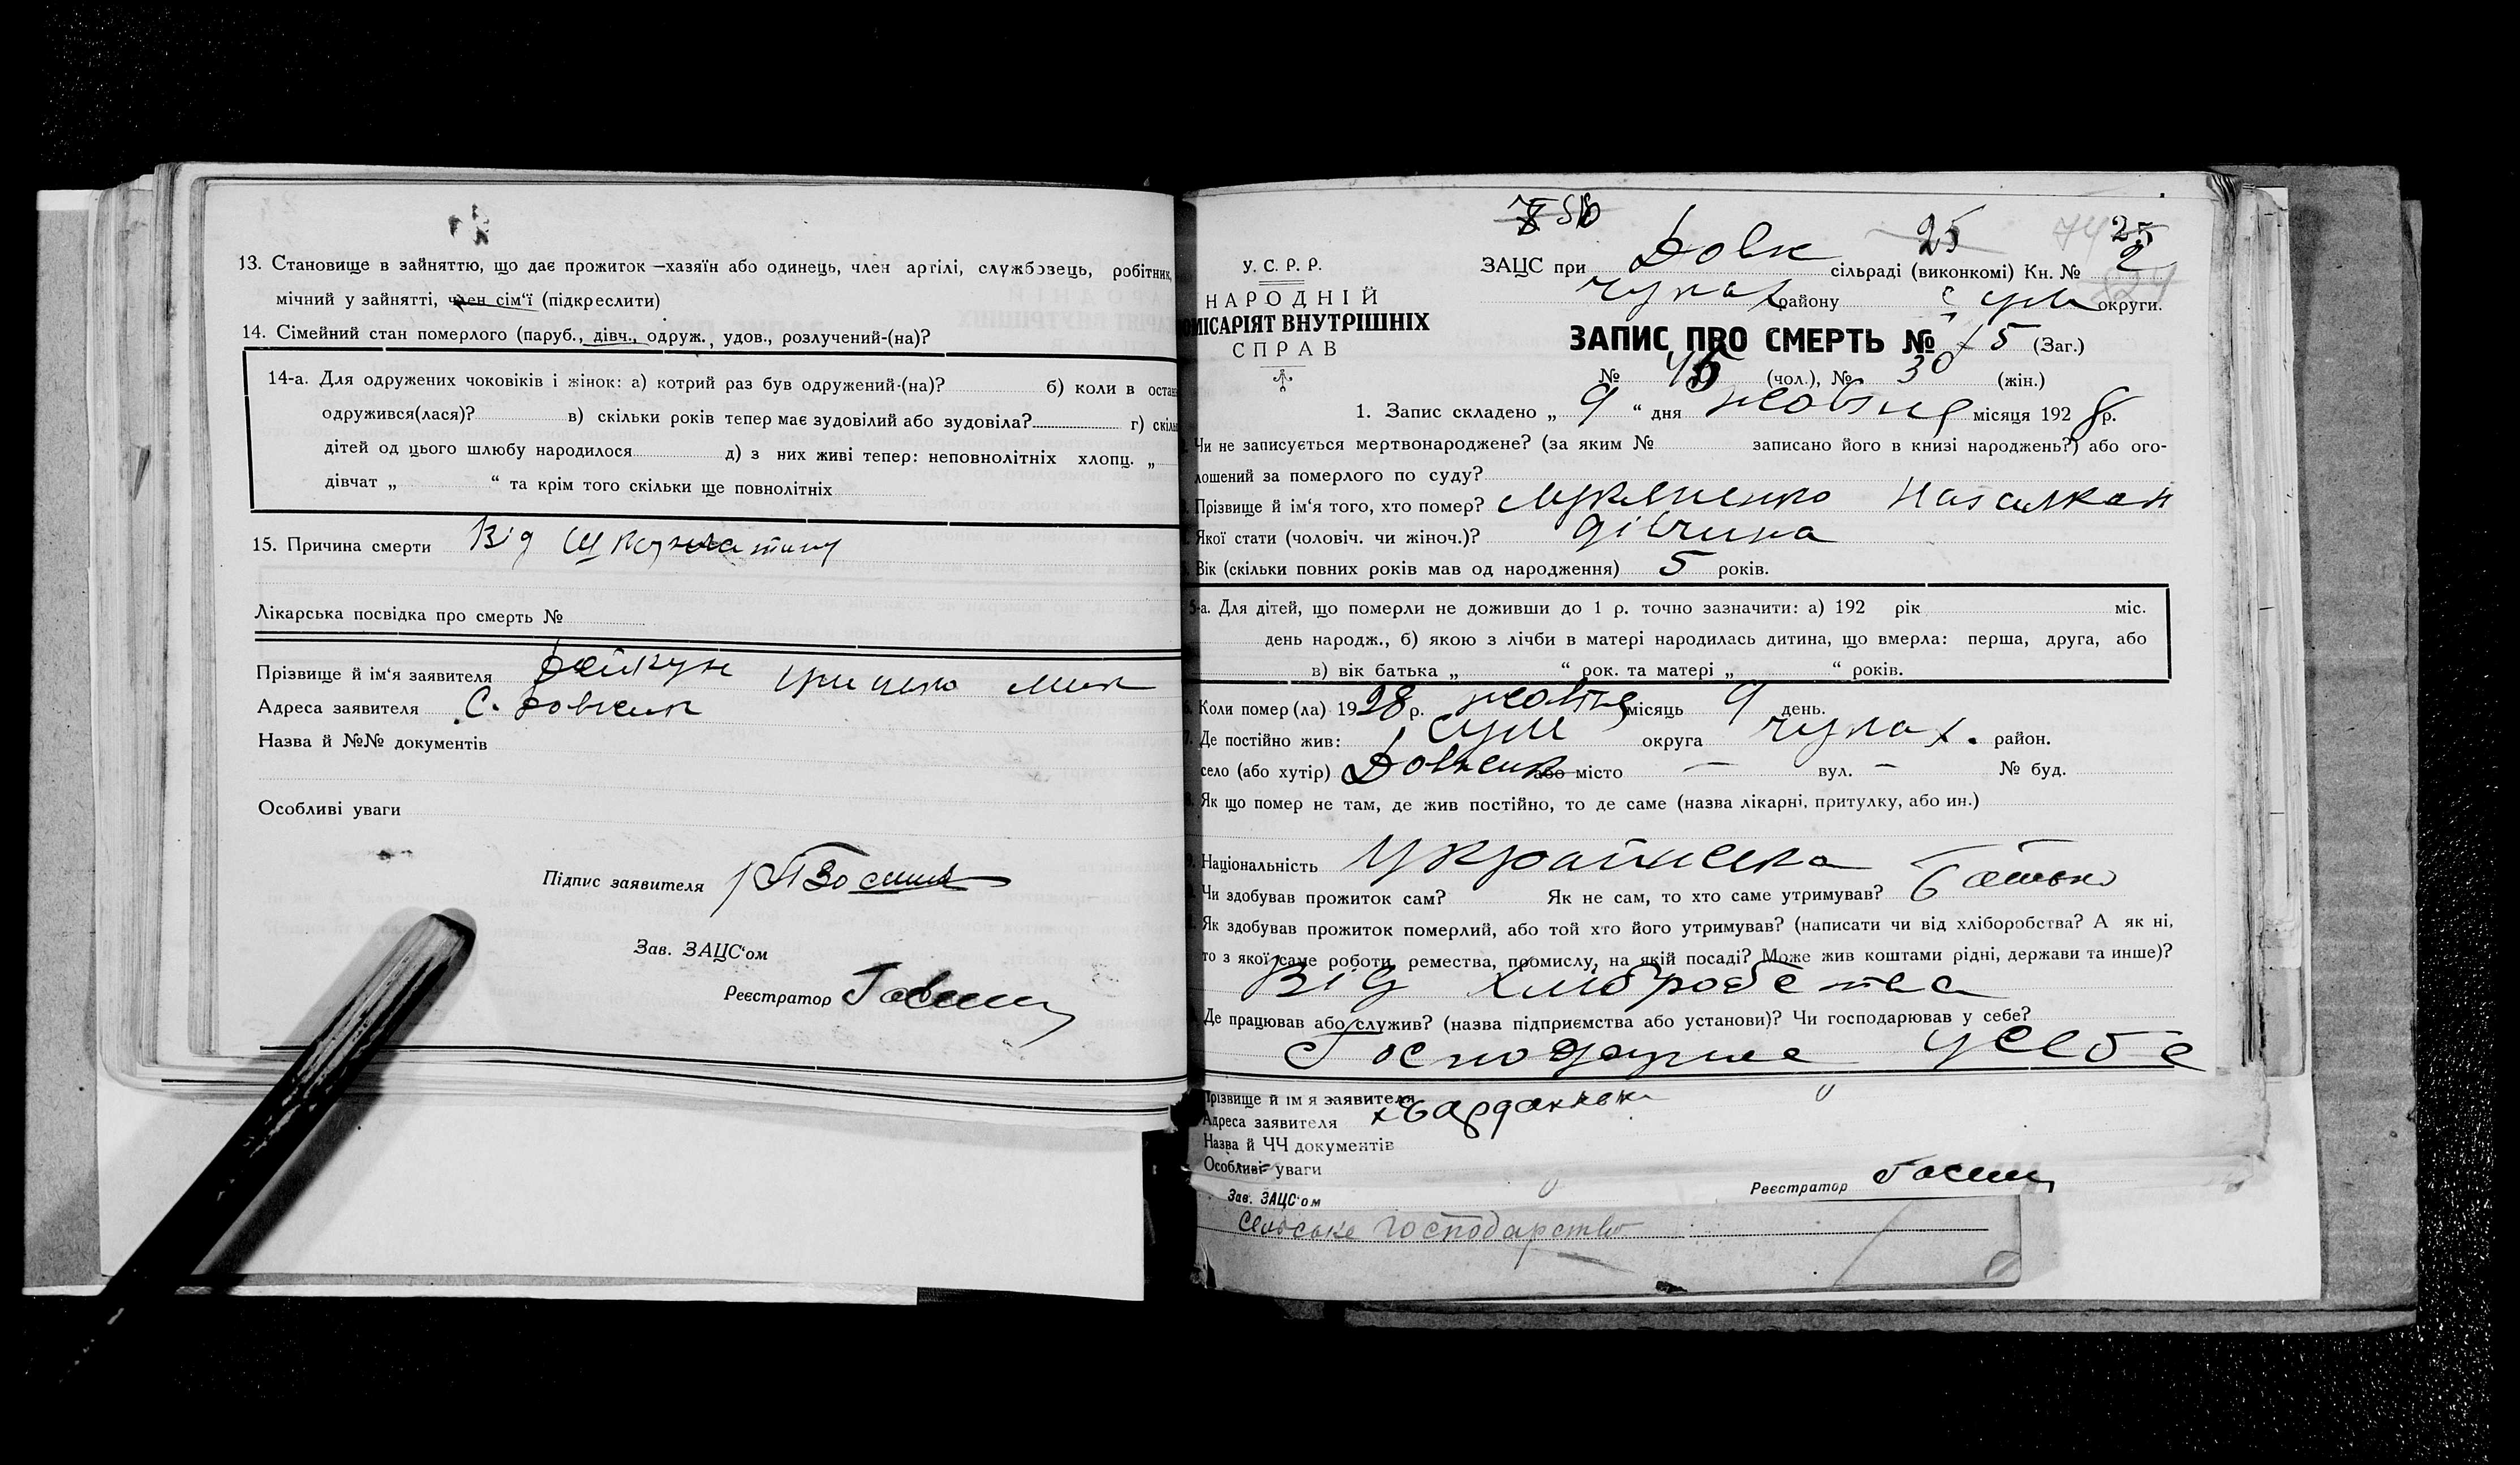 13. Становище в зайняттю, що дає прожиток —хазяїн або одинець, член артілі, службовець, робітник,
мічний у зайнятті, член сім'ї (підкреслити)
14. Сімейний стан померлого (паруб., дівч., одруж., удов., розлучений-(на)?
14-а. Для одружених чоковіків і жінок: а) котрий раз був одружений-(на)? б) коли в остан
одружився(лася)? в) скільки років тепер має зудовілий або зудовіла? г) скіль
дітей од цього шлюбу народилося д) з них живі тепер: неповнолітніх хлопц. „
дівчат „ “ та крім того скільки ще повнолітніх
15. Причина смерти Від
Лікарська посвідка про смерть №
Прізвище й ім'я заявителя
Адреса заявителя С. Довжик
Назва й №№ документів
Особливі уваги
Підпис заявителя
Зав. ЗАЦС'ом
Реєстратор
25 74 25
У. С. Р. Р.
НАРОДНІЙ
КОМІСАРІЯТ ВНУТРІШНІХ
СПРАВ
ЗАЦС при Довж сільраді (виконкомі) Кн. № 2
чупах району Сум округи.
ЗАПИС ПРО СМЕРТЬ № 5 (Заг.)
№ 45 (чол.), № 30 (жін.)
1. Запис складено „ 9 “ дня жовтня місяця 192 8 р.
Чи не записується мертвонароджене? (за яким № записано його в книзі народжень?) або ого-
лошений за померлого по суду?
Прізвище й ім'я того, хто помер?
Якої стати (чоловіч. чи жіноч.)? дівчина
Вік (скільки повних років мав од народження) 5 років.
5-а. Для дітей, що померли не доживши до 1 р. точно зазначити: а) 192 рік міс.
день народж., б) якою з лічби в матері народилась дитина, що вмерла: перша, друга, або
в) вік батька „ “ рок. та матері „ “ років.
Коли помер (ла) 1928 р. жовтня місяць 9 день.
Де постійно жив: Сум округа чупах. район.
село (або хутір) Довжик або місто — вул. — № буд.
Як що помер не там, де жив постійно, то де саме (назва лікарні, притулку, або ин.)
9. Національність Українська
Чи здобував прожиток сам? Як не сам, то хто саме утримував? Батько
Як здобував прожиток померлий, або той хто його утримував? (написати чи від хліборобства? А як ні,
то з якої саме роботи, ремества, промислу, на якій посаді? Може жив коштами рідні, держави та инше)?
Від хлібробства
Де працював або служив? (назва підприємства або установи)? Чи господарював у себе?
Господарює усебе
Прізвище й ім я заявителя
Адреса заявителя
Назва й ЧЧ документів
Особливі уваги
Зав. ЗАЦС'ом
Реєстратор
сельське господарство